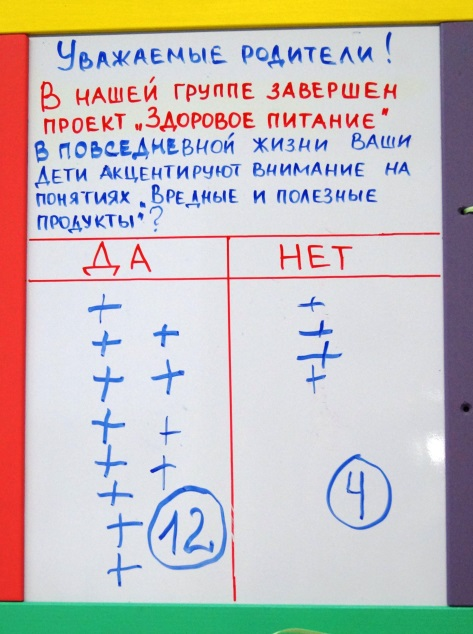 Уважаемые родители!
В нашей группе завершен
проект „Здоровое питание"
В повседневной жизни ваши
дети акцентируют внимание на
понятиях „Вредные и полезные
продукты"?
ДА НЕТ
+ +
+ + +
+ + +
+ + +
+ +
+
+
+
12 4